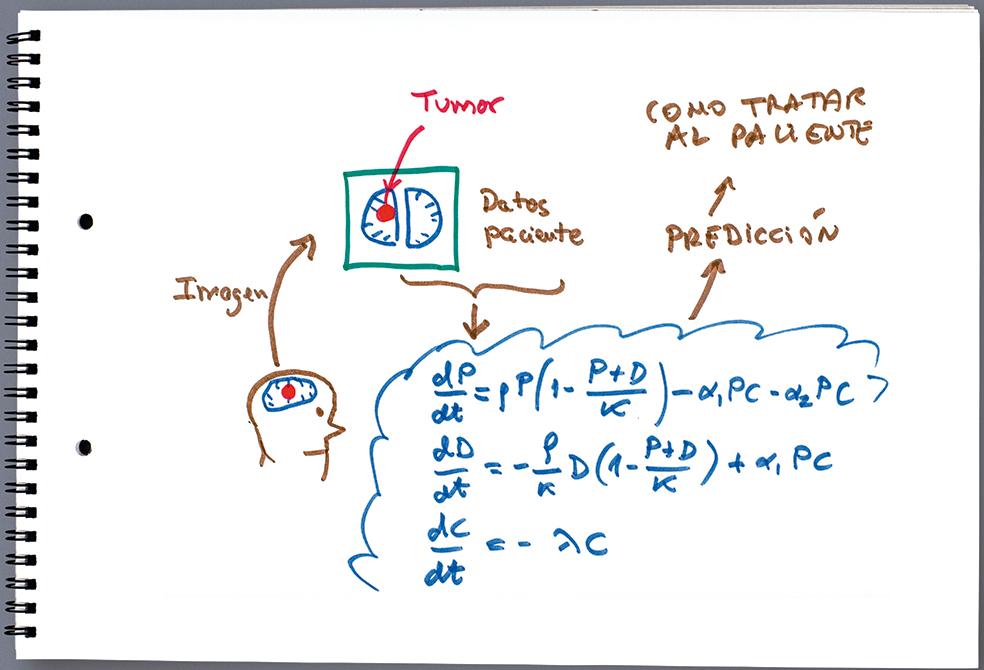 Tumor
COMO TRATAR
AL PACIENTE
Datos
paciente
PREDICCIÓN
Imagen
dP/dt = ρP(1 - P+D/K) - α₁PC - α₂PC
dD/dt = - ρ/κ D(1 - P+D/K) + α₁PC
dC/dt = - λC